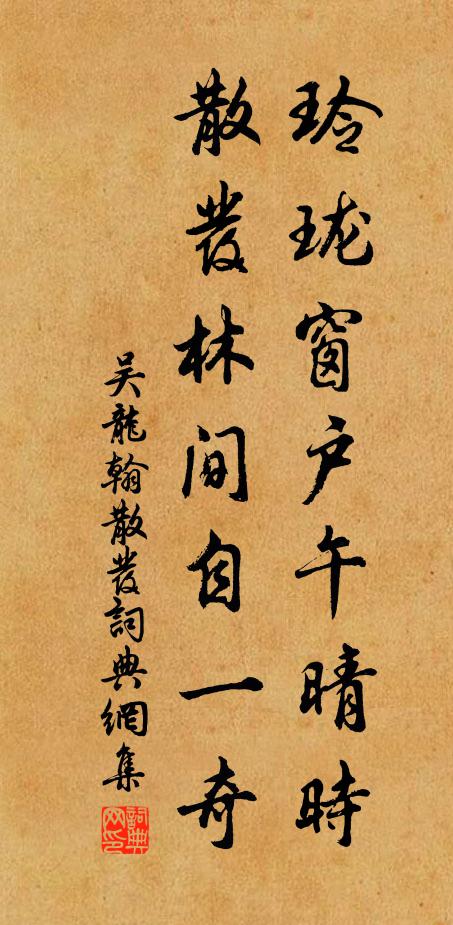 玲珑窗户午晴時
散发林间自一奇
吴龍翰散发詞典網集
詞典网印